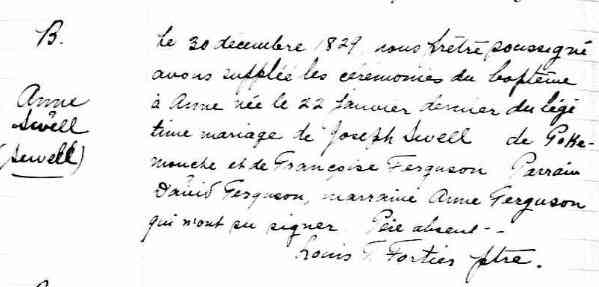 B.
Anne
Sewell
(Sewell)
Le 30 décembre 1829 nous prêtre soussigné
avons supplée les cérémonies du baptême
à Anne née le 22 janvier dernier du légi
time mariage de Joseph Sewell de Poke-
mouche et de Françoise Ferguson Parrain
David Ferguson, marraine Anne Ferguson
qui n'ont su signer Père absent --
Louis T. Fortier ptre.